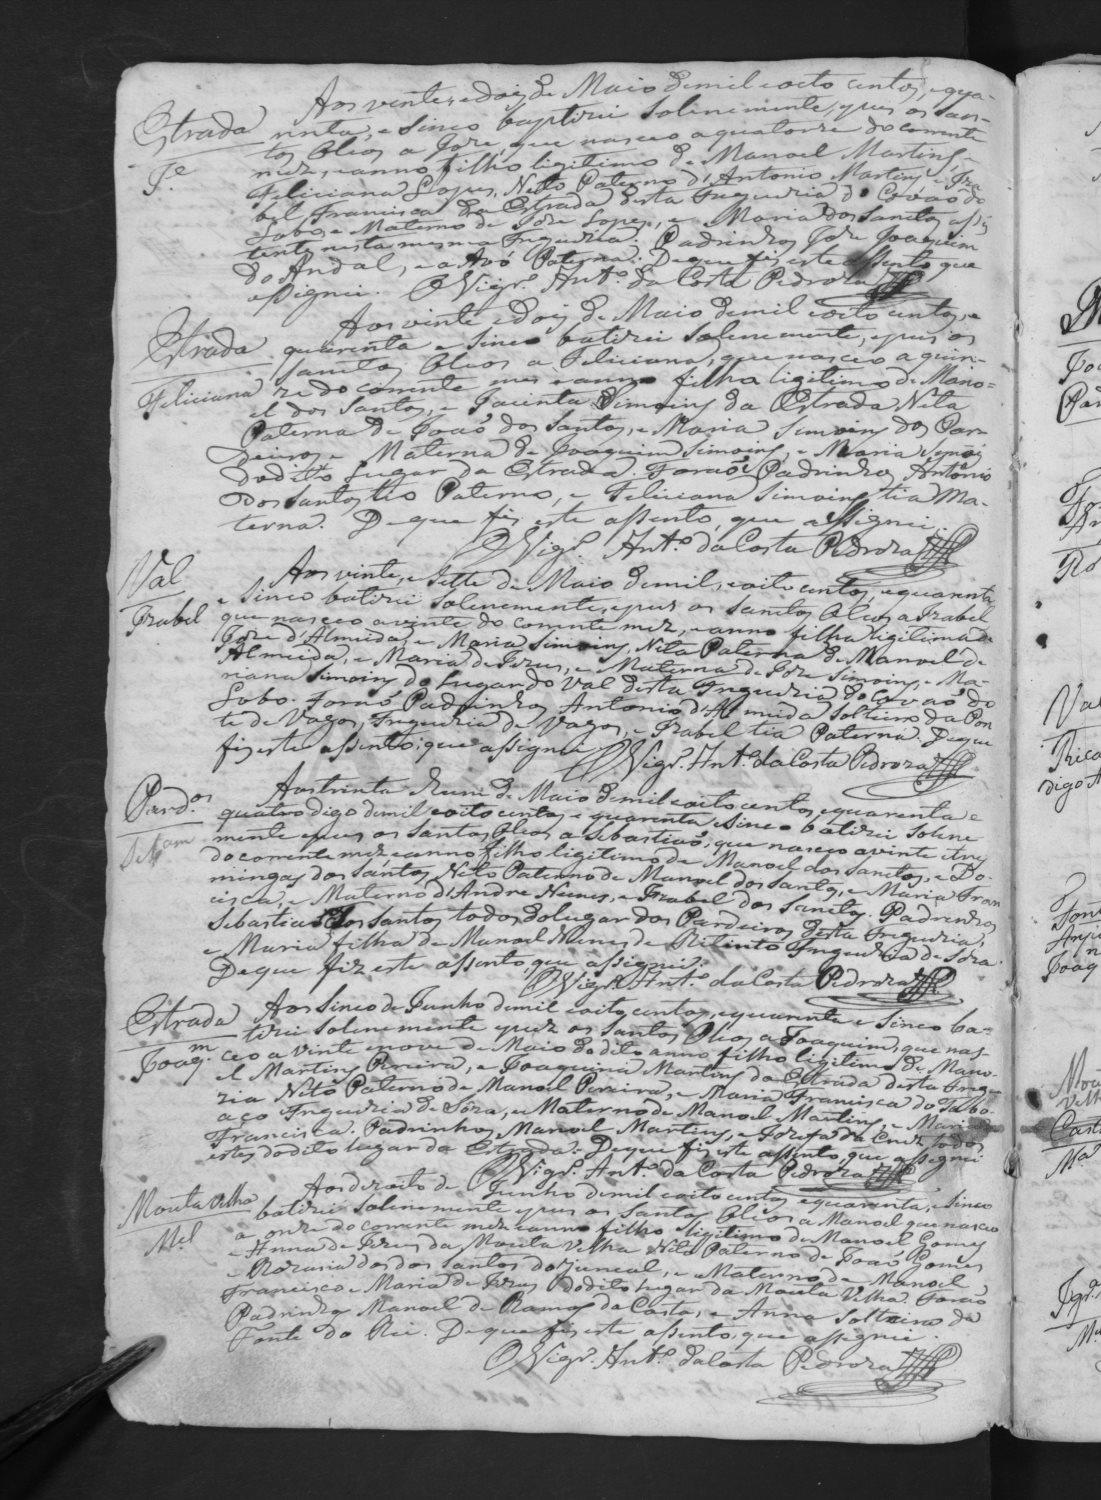 Estrada
Je
Aos vinte, e dois de Maio de mil e oito centos, e qua-
renta, e sinco baptizei solenemente, e pus os San-
tos Oleos a Joze, que nasceo a quatorze do corrente
mez, e anno filho ligitimo de Manoel Martins,
Feliciana Lopes, Neto Paterno d'Antonio Martins e Iza
bel Francisca da Estrada desta Freguezia do Covaõ do
Lobo, e Materno de Joze Lopes, e Maria dos Santos assis
tente nesta mesma Freguezia. Padrinhos Joze Joaquim
do Andal, e a Avó Paterna. De que fis este assento que
assignei. O Vigr.º Ant.º da Costa Pedroza
Estrada
Feliciana
Aos vinte e dois de Maio de mil e oito centos, e
quarenta e sinco batizei solenemente, e pus os
Santos Oleos a Feliciana, que nasceo a quin-
ze do corrente mes e anno filha ligitima de Mano-
el dos Santos, e Jacinta Simoins da Estrada Neta
Paterna de Joaõ dos Santos, e Maria Simoins dos Par-
deiros e Materna de Joaquim Simoins, e Maria
do ditto Lugar da Estrada. Foraõ Padrinhos Antonio
dos Santos tio Paterno, e Feliciana Simoins tia Ma-
terna. De que fis este assento, que assignei.
O Vigr.º Ant.º da Costa Pedroza
Val
Izabel
Aos vinte, e sette de Maio de mil, e oito centos, e quarenta
e sinco batizei solenemente, e pus os Santos Oleos a Izabel
que nasceo a vinte do corrente mez, e anno filha ligitima de
Joze d'Almeida, e Maria Simoins, Neta Paterna de Manoel de
Almeida, e Maria de Jezus, e Materna de Joze Simoins, e Ma-
riana Simoins do Lugar do Val desta Freguezia do Covaõ do
Lobo. Foraõ Padrinhos Antonio d'Almeida solteiro da Pon
te de Vagos, Freguezia de Vagos, e Izabel tia Paterna. De que
fiz este assento, que assignei. O Vigr.º Ant.º da Costa Pedroza
Pard.os
Aos trinta e hum de Maio de mil e oito centos, e quarenta e
quatro digo de mil e oito centos e quarenta e sinco batizei solene
mente e pus os Santos Oleos a Sebastiaõ, que nasceo a vinte e tres
do corrente mez e anno filho ligitimo de Manoel dos Santos, e Do-
mingas dos Santos Neto Paterno de Manoel dos Santos, e Maria Fran
cisca, e Materno d'Andre Nunes, e Izabel dos Santos. Padrinhos
Sebastiaõ dos Santos todos do lugar dos Pardeiros desta Freguezia,
e Maria filha de Manoel Nunes de Freguezia de Soza.
De que fiz este assento, que assignei.
O Vigr.º Ant.º da Costa Pedroza
Estrada
Joaq.m
Aos sinco de Junho de mil e oito centos, e quarenta e sinco ba-
tizei solenemente e puz os Santos Oleos a Joaquim, que nas-
ceo a vinte e nove de Maio do dito anno filho ligitimo de Mano-
el Martins Pereira, e Joaquina Martins da Estrada desta Fregue
zia Neto Paterno de Manoel Pereira, e Maria Francisca do
Freguezia de Soza, e Materno de Manoel Martins, e Maria
Francisca. Padrinhos Manoel Martins, e Jozefa da Cruz todos
estes do dito lugar da Estrada. De que fiz este assento, que assignei
O Vigr.º Ant.º da Costa Pedroza
Mouta Velha
M.el
Aos dezoito de Junho de mil e oito centos e quarenta, e sinco
batizei solenemente e pus os Santos Oleos a Manoel que nasceo
a onze do corrente mez e anno filho ligitimo de Manoel Gomes
e Anna de Jezus da Mouta Velha Neto Paterno de Joaõ Gomes
e Rozaria dos Santos do Juncal, e Materno de Manoel
Francisco e Maria de Jezus do dito lugar da Mouta Velha. Foraõ
Padrinhos Manoel de Ramos da Costa, e Anna solteira da
Fonte do Rei. De que fis este assento, que assignei.
O Vigr.º Ant.º da Costa Pedroza